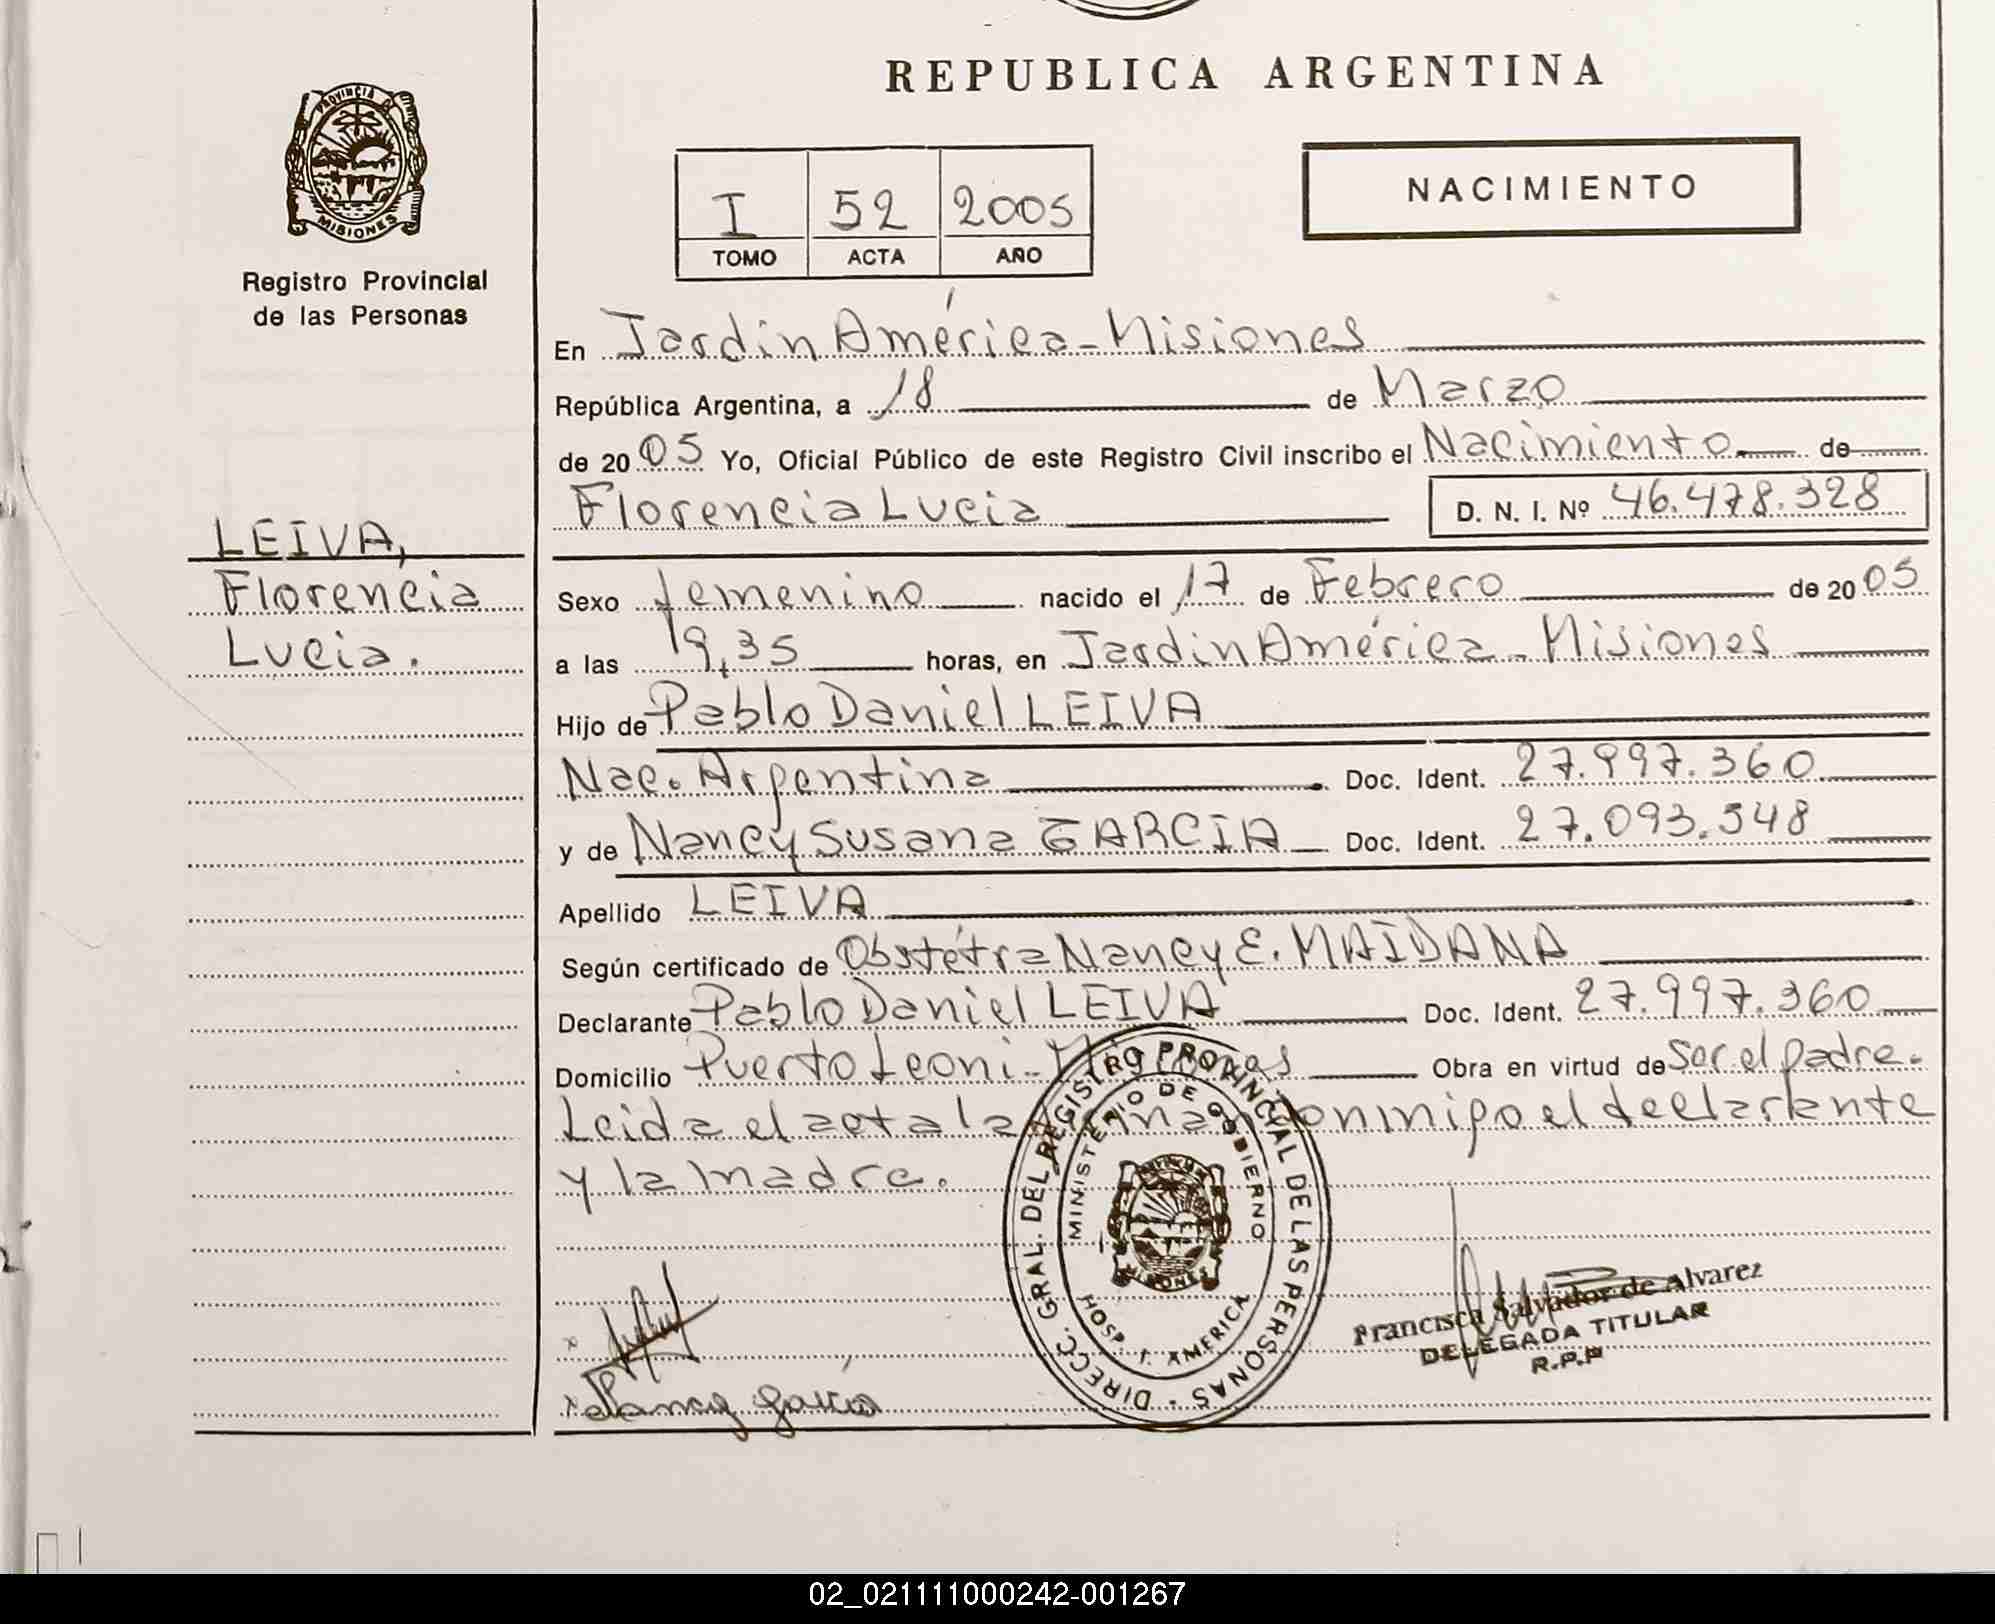 REPUBLICA ARGENTINA
PROVINCIA D
MISIONES
Registro Provincial
de las Personas
I 52 2005
TOMO ACTA AÑO
NACIMIENTO
En Jardin América - Misiones
República Argentina, a 18 de Marzo
de 2005 Yo, Oficial Público de este Registro Civil inscribo el Nacimiento de
Florencia Lucia D. N. I. Nº 46.478.328
LEIVA,
Florencia
Lucia.
Sexo femenino nacido el 17 de Febrero de 2005
a las 19,35 horas, en Jardin América - Misiones
Hijo de Pablo Daniel LEIVA
Nac. Argentina Doc. Ident. 27.997.360
y de Nancy Susana GARCIA Doc. Ident. 27.093.548
Apellido LEIVA
Según certificado de Obstétra Nancy E. MAIDANA
Declarante Pablo Daniel LEIVA Doc. Ident. 27.997.360
Domicilio Puerto Leoni - Misiones Obra en virtud de Ser el padre.
Leida el acta la firman conmigo el declarante
y la madre.
DIRECC. GRAL. DEL REGISTRO PROVINCIAL DE LAS PERSONAS
MINISTERIO DE GOBIERNO
MISIONES
HOSP. J. AMERICA
Francisca Salvador de Alvarez
DELEGADA TITULAR
R.P.P
x
x Nancy García
02_021111000242-001267